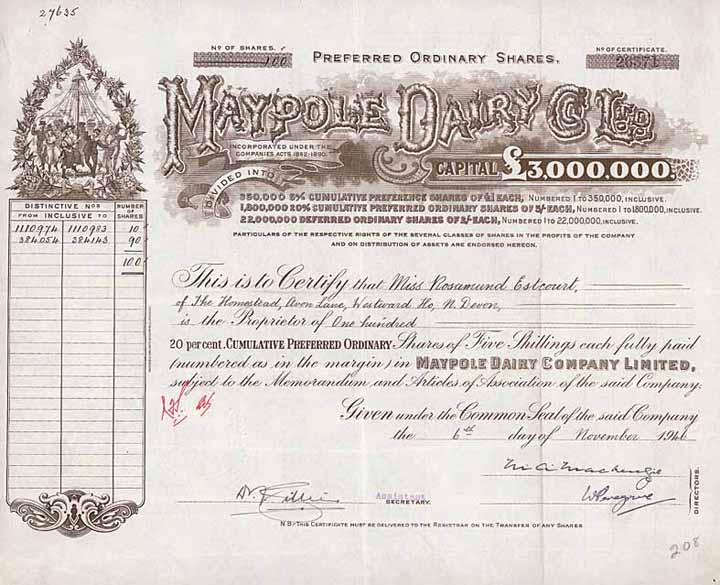 27635
No OF SHARES.
100
PREFERRED ORDINARY SHARES.
No OF CERTIFICATE.
26571
MAYPOLE DAIRY Co LTD
INCORPORATED UNDER THE
COMPANIES ACTS 1862-1890.
CAPITAL £3,000,000.
DIVIDED INTO
350,000 5% CUMULATIVE PREFERENCE SHARES OF £1 EACH, NUMBERED 1 TO 350,000, INCLUSIVE.
1,800,000 20% CUMULATIVE PREFERRED ORDINARY SHARES OF 5/- EACH, NUMBERED 1 TO 1,800,000, INCLUSIVE.
22,000,000 DEFERRED ORDINARY SHARES OF 2/- EACH, NUMBERED 1 TO 22,000,000, INCLUSIVE.
PARTICULARS OF THE RESPECTIVE RIGHTS OF THE SEVERAL CLASSES OF SHARES IN THE PROFITS OF THE COMPANY
AND ON DISTRIBUTION OF ASSETS ARE ENDORSED HEREON.
DISTINCTIVE Nos
FROM INCLUSIVE TO
NUMBER OF SHARES
1110974 1110983 10
384054 384143 90
100
This is to Certify that Miss Rosamund Estcourt,
of The Homestead, Avon Lane, Westward Ho, N. Devon,
is the Proprietor of One hundred
20 per cent. CUMULATIVE PREFERRED ORDINARY Shares of Five Shillings each fully paid
(numbered as in the margin) in MAYPOLE DAIRY COMPANY LIMITED,
subject to the Memorandum and Articles of Association of the said Company.
Given under the Common Seal of the said Company
the 6th day of November 1946
M A Mackenzie
DIRECTORS.
Assistant
SECRETARY.
N.B. THIS CERTIFICATE MUST BE DELIVERED TO THE REGISTRAR ON THE TRANSFER OF ANY SHARES
208